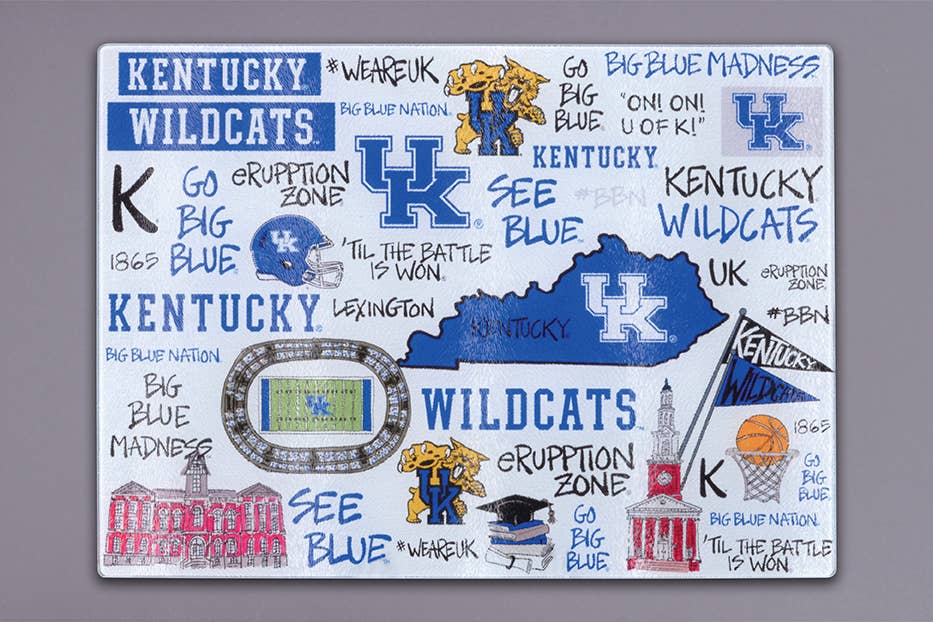 KENTUCKY
WILDCATS
#WEAREUK
BIG BLUE NATION
UK
GO
BIG
BLUE
BIG BLUE MADNESS
"ON! ON!
U OF K!"
UK
KENTUCKY
K
GO
BIG
BLUE
1865
eRUPPTION
ZONE
UK
UK
'TIL THE BATTLE
IS WON
SEE
BLUE
#BBN
KENTUCKY
WILDCATS
KENTUCKY
LEXINGTON
KENTUCKY
UK
UK
eRUPPTION
ZONE
#BBN
KENTUCKY
WILDCATS
BIG BLUE NATION
BIG
BLUE
MADNESS
UK
WILDCATS
SEE
BLUE
UK
#WEAREUK
eRUPPTION
ZONE
GO
BIG
BLUE
K
1865
GO
BIG
BLUE
BIG BLUE NATION
'TIL THE BATTLE
IS WON